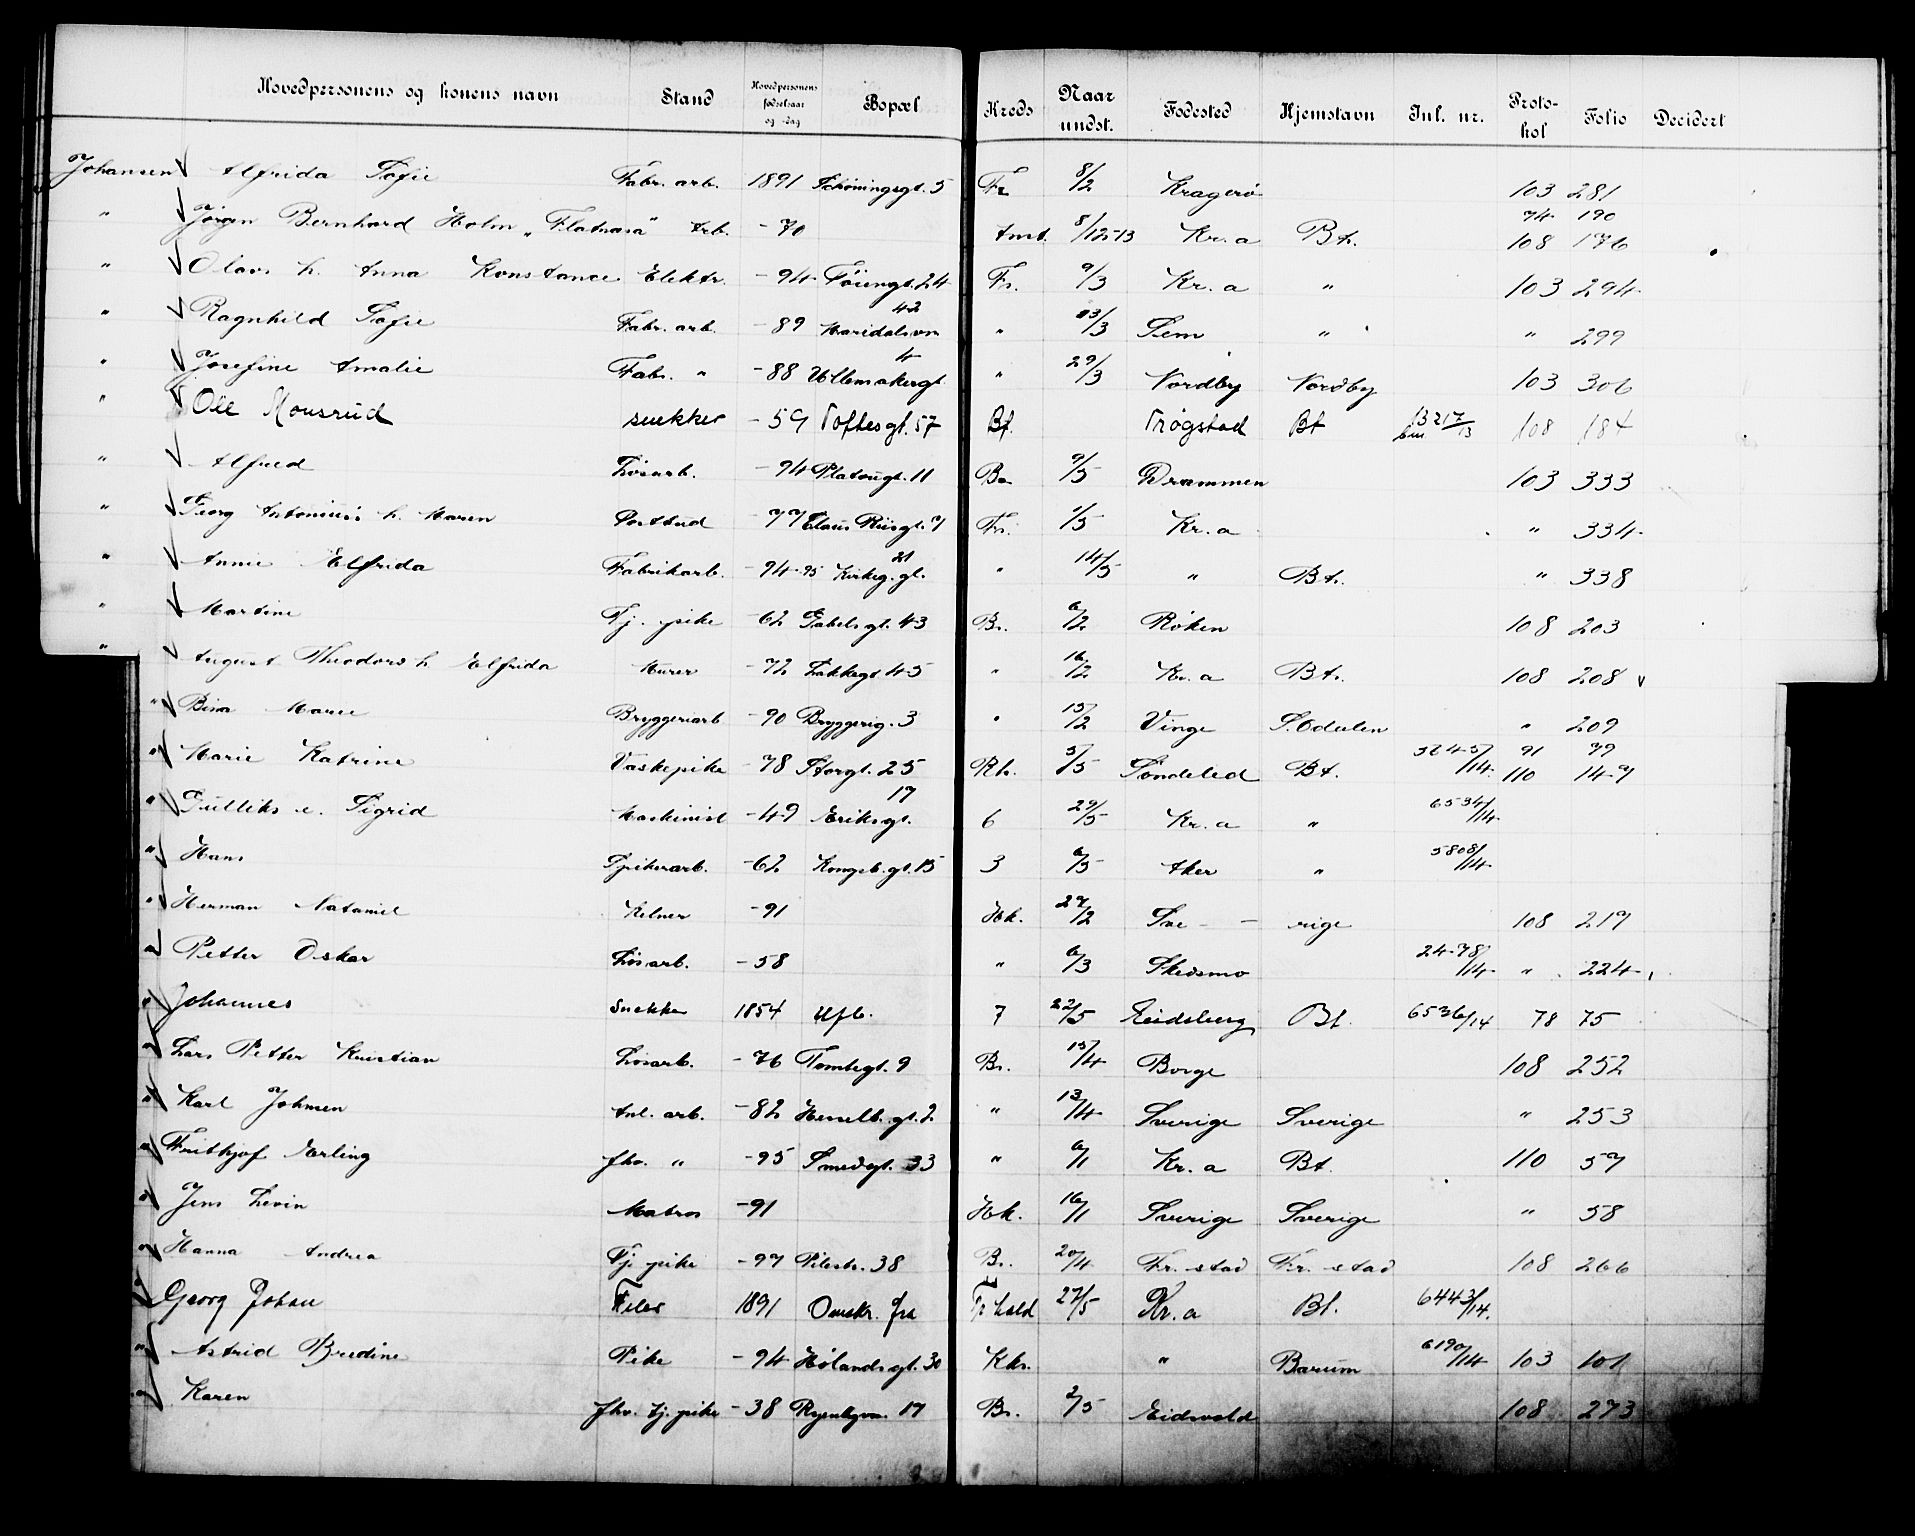 Hovedpersonens og konens navn Stand Hovedpersonens fødselsaar og -dag Bopæl Kreds Naar undst. Fødested Hjemstavn Jul. nr. Protokol Folio Decidert
Johansen Alfrida Sofie Fabr. arb. 1891 Schøningsgt. 5 Fr. 8/2 Kragerø 103 281
" Jørgen Bernhard Holm „Flatnasa" Arb. -70 Amt. 8/12-13 Kr.a Bt. 74 190 108 176
" Olavs h. Anna Konstance Elektr. -94 Tøiengt. 24 Fr. 9/3 Kr.a " 103 294
" Ragnhild Sofie Fabr. arb. -89 Maridalsvn 42 " 13/3 Sem " " 299
" Josefine Amalie Fabr. " -88 Ullensakergt. 4 " 29/3 Nordby Nordby 103 306
" Ole Monsrud snekker -59 Toftesgt. 57 Bf. Trøgstad Bt 108 184
" Alfred Løsarb. -94 Platougt. 11 Br. 9/5 Drammen 103 333
" Georg Antonius h. Maren Postbud -77 Claus Riisgt. 7 Fr. 1/5 Kr.a " 334
" Annie Elfrida Fabrikarb. -94-95 Kirkeg. gt. 21 " 14/5 " Bt. " 338
" Martine Tj. pike -62 Gabels gt. 43 Br. 6/2 Røken 108 203
" August Theodors h Elfrida Murer -72 Lakkegt. 45 " 16/2 Kr.a Bt. 108 208
" Bina Marie Bryggeriarb -90 Bryggerig. 3 " 15/2 Vinge S. Odalen " 209
" Marie Katrine Vaskepike -78 Storgt. 25 Rh. 5/5 Søndeled Bt. 5245/14 91 79 110 147
" Gulliks e. Sigrid Maskinist -49 Eriksgt. 17 6 29/5 Kr.a " 6534/14
" Hans Spikerarb. -62 Kongsb. gt. 15 3 6/5 Aker " 5808/14
" Herman Nataniel Kelner -91 Hk. 27/2 Sve - rige 108 219
" Petter Oskar Løsarb. -58 " 6/3 Skedsmo 2478/14 " 224
" Johannes Snekker 1854 Ufb. 7 22/5 Eidsberg Bt. 6536/14 78 75
" Lars Petter Kristian Løsarb. -76 Tomtegt. 9 Br. 15/4 Borge 108 252
" Karl Johmen Anl. arb. -82 Hesselb. gt. 2 " 13/4 Sverige Sverige " 253
" Frithjof Erling fhv. " -95 Smedgt. 33 " 6/1 Kr.a Bt. 110 57
" Jens Levin Matros -91 Hk. 16/1 Sverige Sverige " 58
" Hanna Andrea Tj. pike -97 Pilestr. 38 Br. 20/4 Fr. stad Fr. stad 108 266
" Georg Johan Filer 1891 Omstr. fra Fr hald 27/5 Kr.a Bt. 6443/14.
" Astrid Bredine Pike -94 Hølandsgt. 30 Kks. " Bærum 6190/14 103 101
" Karen fhv. tj. pike -38 Ryenbgvn. 17 Br. 2/5 Eidsvold 108 273